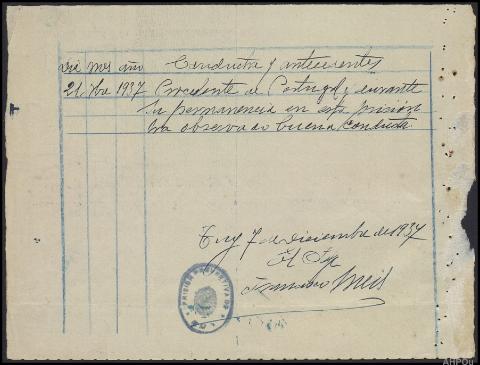 Dia mes año Conducta y antecedentes
21 Nbre 1937 Procedente de Portugal y durante
su permanencia en esta prisión
ha observado buena conducta.
Tuy 7 de Diciembre de 1937
El Jefe
Francisco
PRISION PREVENTIVA DE
AHPOu